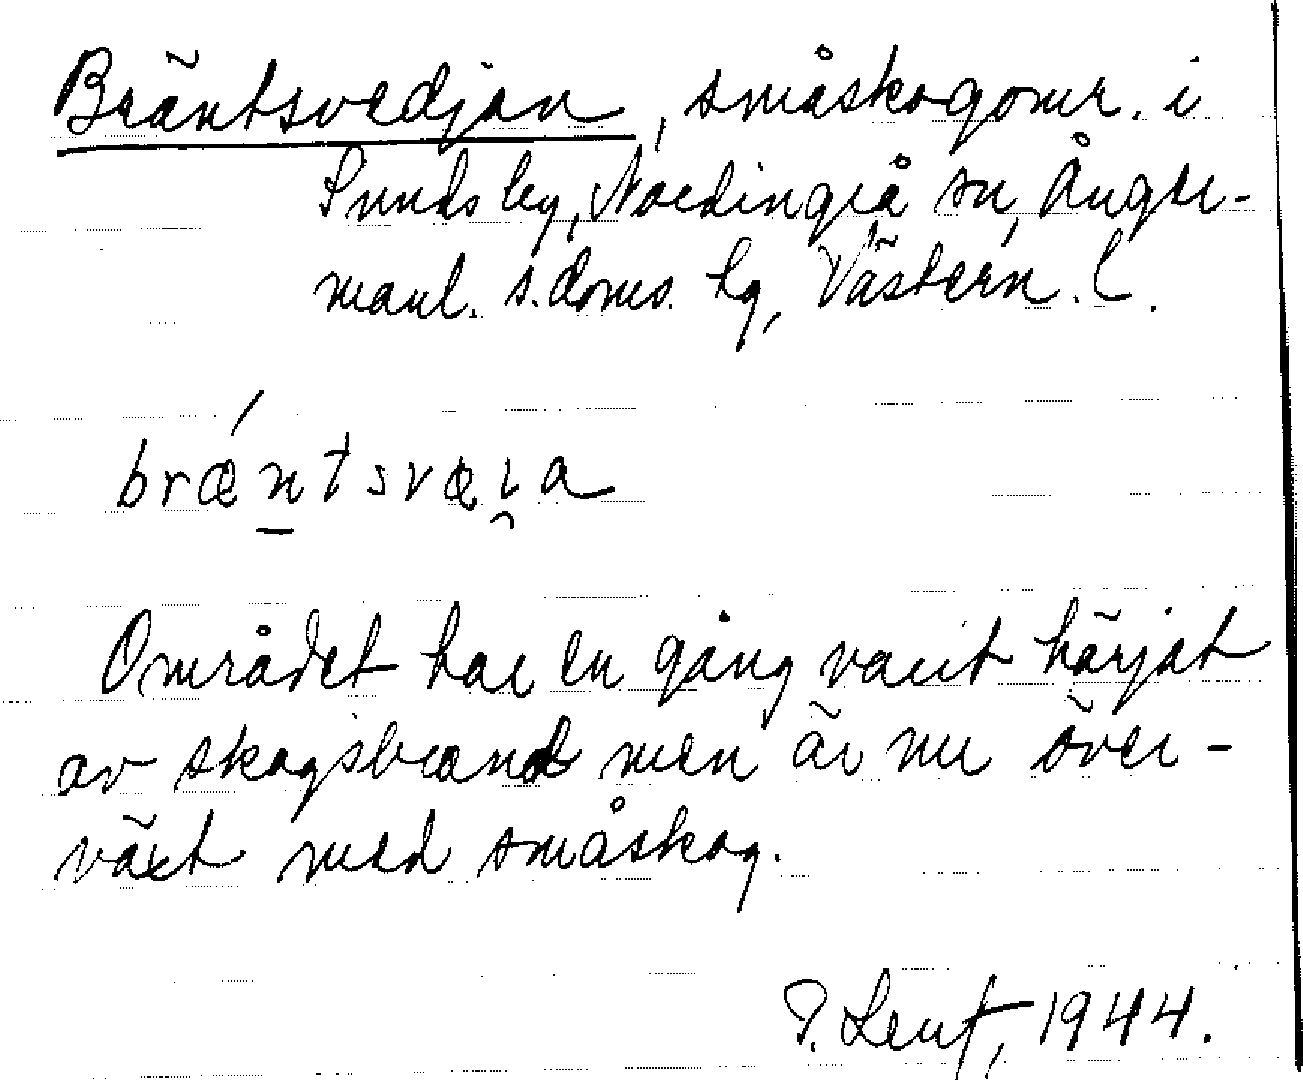 Bräntsvedjan, småskogomr. i
Sunds by, Nordingrå sn, Ånger-
manl. s. doms. hg, Västern. l.
bræ´ntsvæıa
Området har en gång varit härjat
av skogsbrand men är nu över-
växt med småskog.
1944.